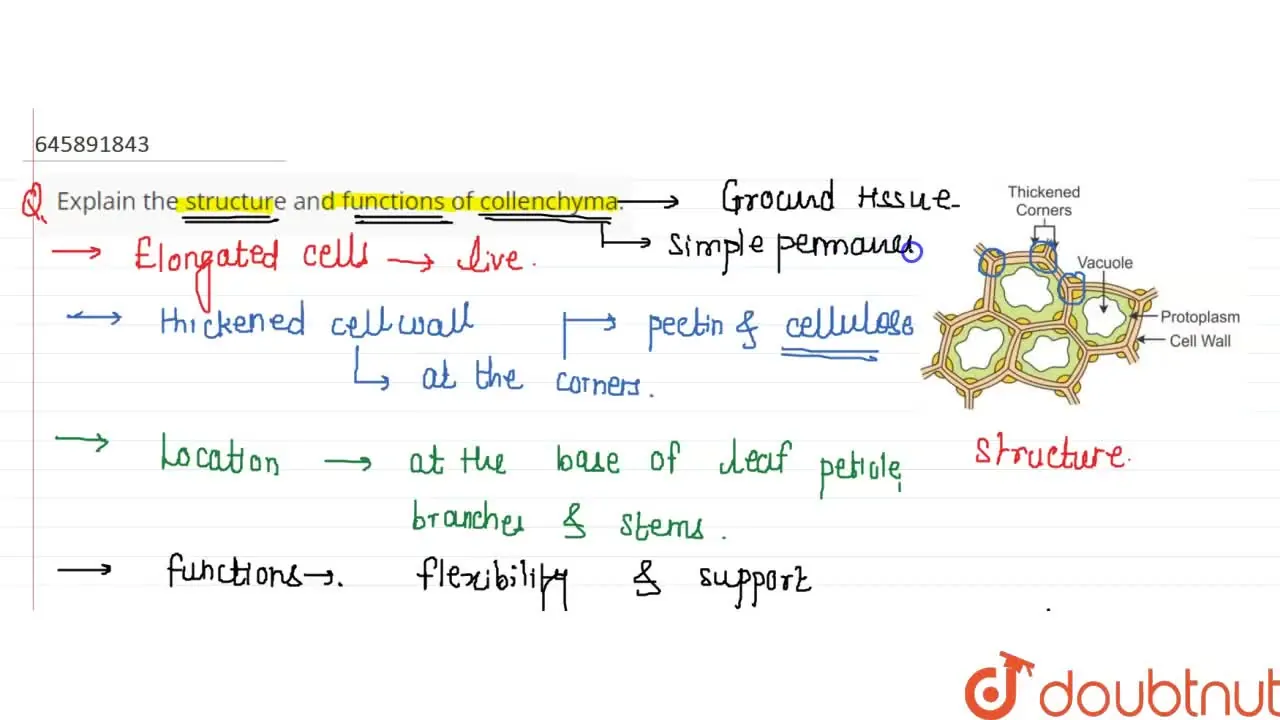 645891843
Q. Explain the structure and functions of collenchyma. → Ground tissue
→ simple permanen
→ Elongated cells → live.
→ thickened cell wall → pectin & cellulose
→ at the corners.
→ Location → at the base of leaf petiole,
branches & stems.
→ functions →. flexibility & support
Thickened
Corners
Vacuole
Protoplasm
Cell Wall
structure.
doubtnut